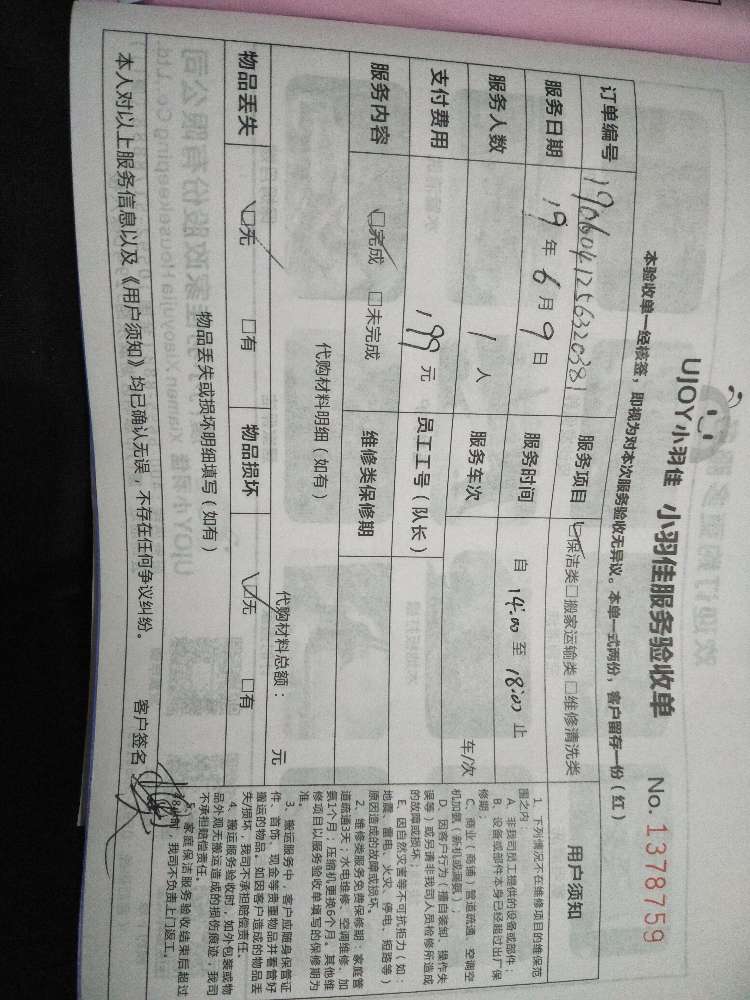 UJOY小羽佳 小羽佳服务验收单 No. 1378759
本验收单一经核签，即视为对本次服务验收无异议。本单一式两份，客户留存一份（红）
订单编号 服务项目 □保洁类□搬家运输类□维修清洗类
服务日期 19年6月9日 服务时间 自 14:00 至 18:00 止
服务人数 1 人 服务车次 车/次
支付费用 199 元 员工工号（队长）
服务内容 □完成 □未完成 维修类保修期
代购材料明细（如有） 代购材料总额： 元
物品丢失 □无 □有 物品损坏 □无 □有
物品丢失或损坏明细填写（如有）
本人对以上服务信息以及《用户须知》均已确认无误，不存在任何争议纠纷。 客户签名：
用户须知
1、下列情况不在维修项目的维保范
围之内：
A、非我司员工提供的设备或部件；
B、设备或部件本身已经超过出厂保
修期；
C、商业（商铺）管道疏通、空调空
机加氨（新机或漏氨）；
D、因客户行为（擅自装卸、操作失
误等）或另请非我司人员检修所造成
的故障或损坏；
E、因自然灾害等不可抗拒力（如：
地震、雷电、火灾、停电、短路等）
原因造成的故障或损坏。
2、维修类服务免费保修期：家庭管
道疏通3天；水电维修、空调维修、加
氨1个月；压缩机更换6个月。其他维
修项目以服务验收单填写的保修期为
准。
3、搬运服务中，客户应随身保管证
件、首饰、现金等贵重物品并看管好
搬运的物品。如因客户造成的物品丢
失/损坏，我司不承担赔偿责任。
4、搬运服务验收时，如外包装或物
品外观无搬运造成的损伤痕迹，我司
不承担赔偿责任。
5、家庭保洁服务验收结束后超过
制，我司不负责上门返工。